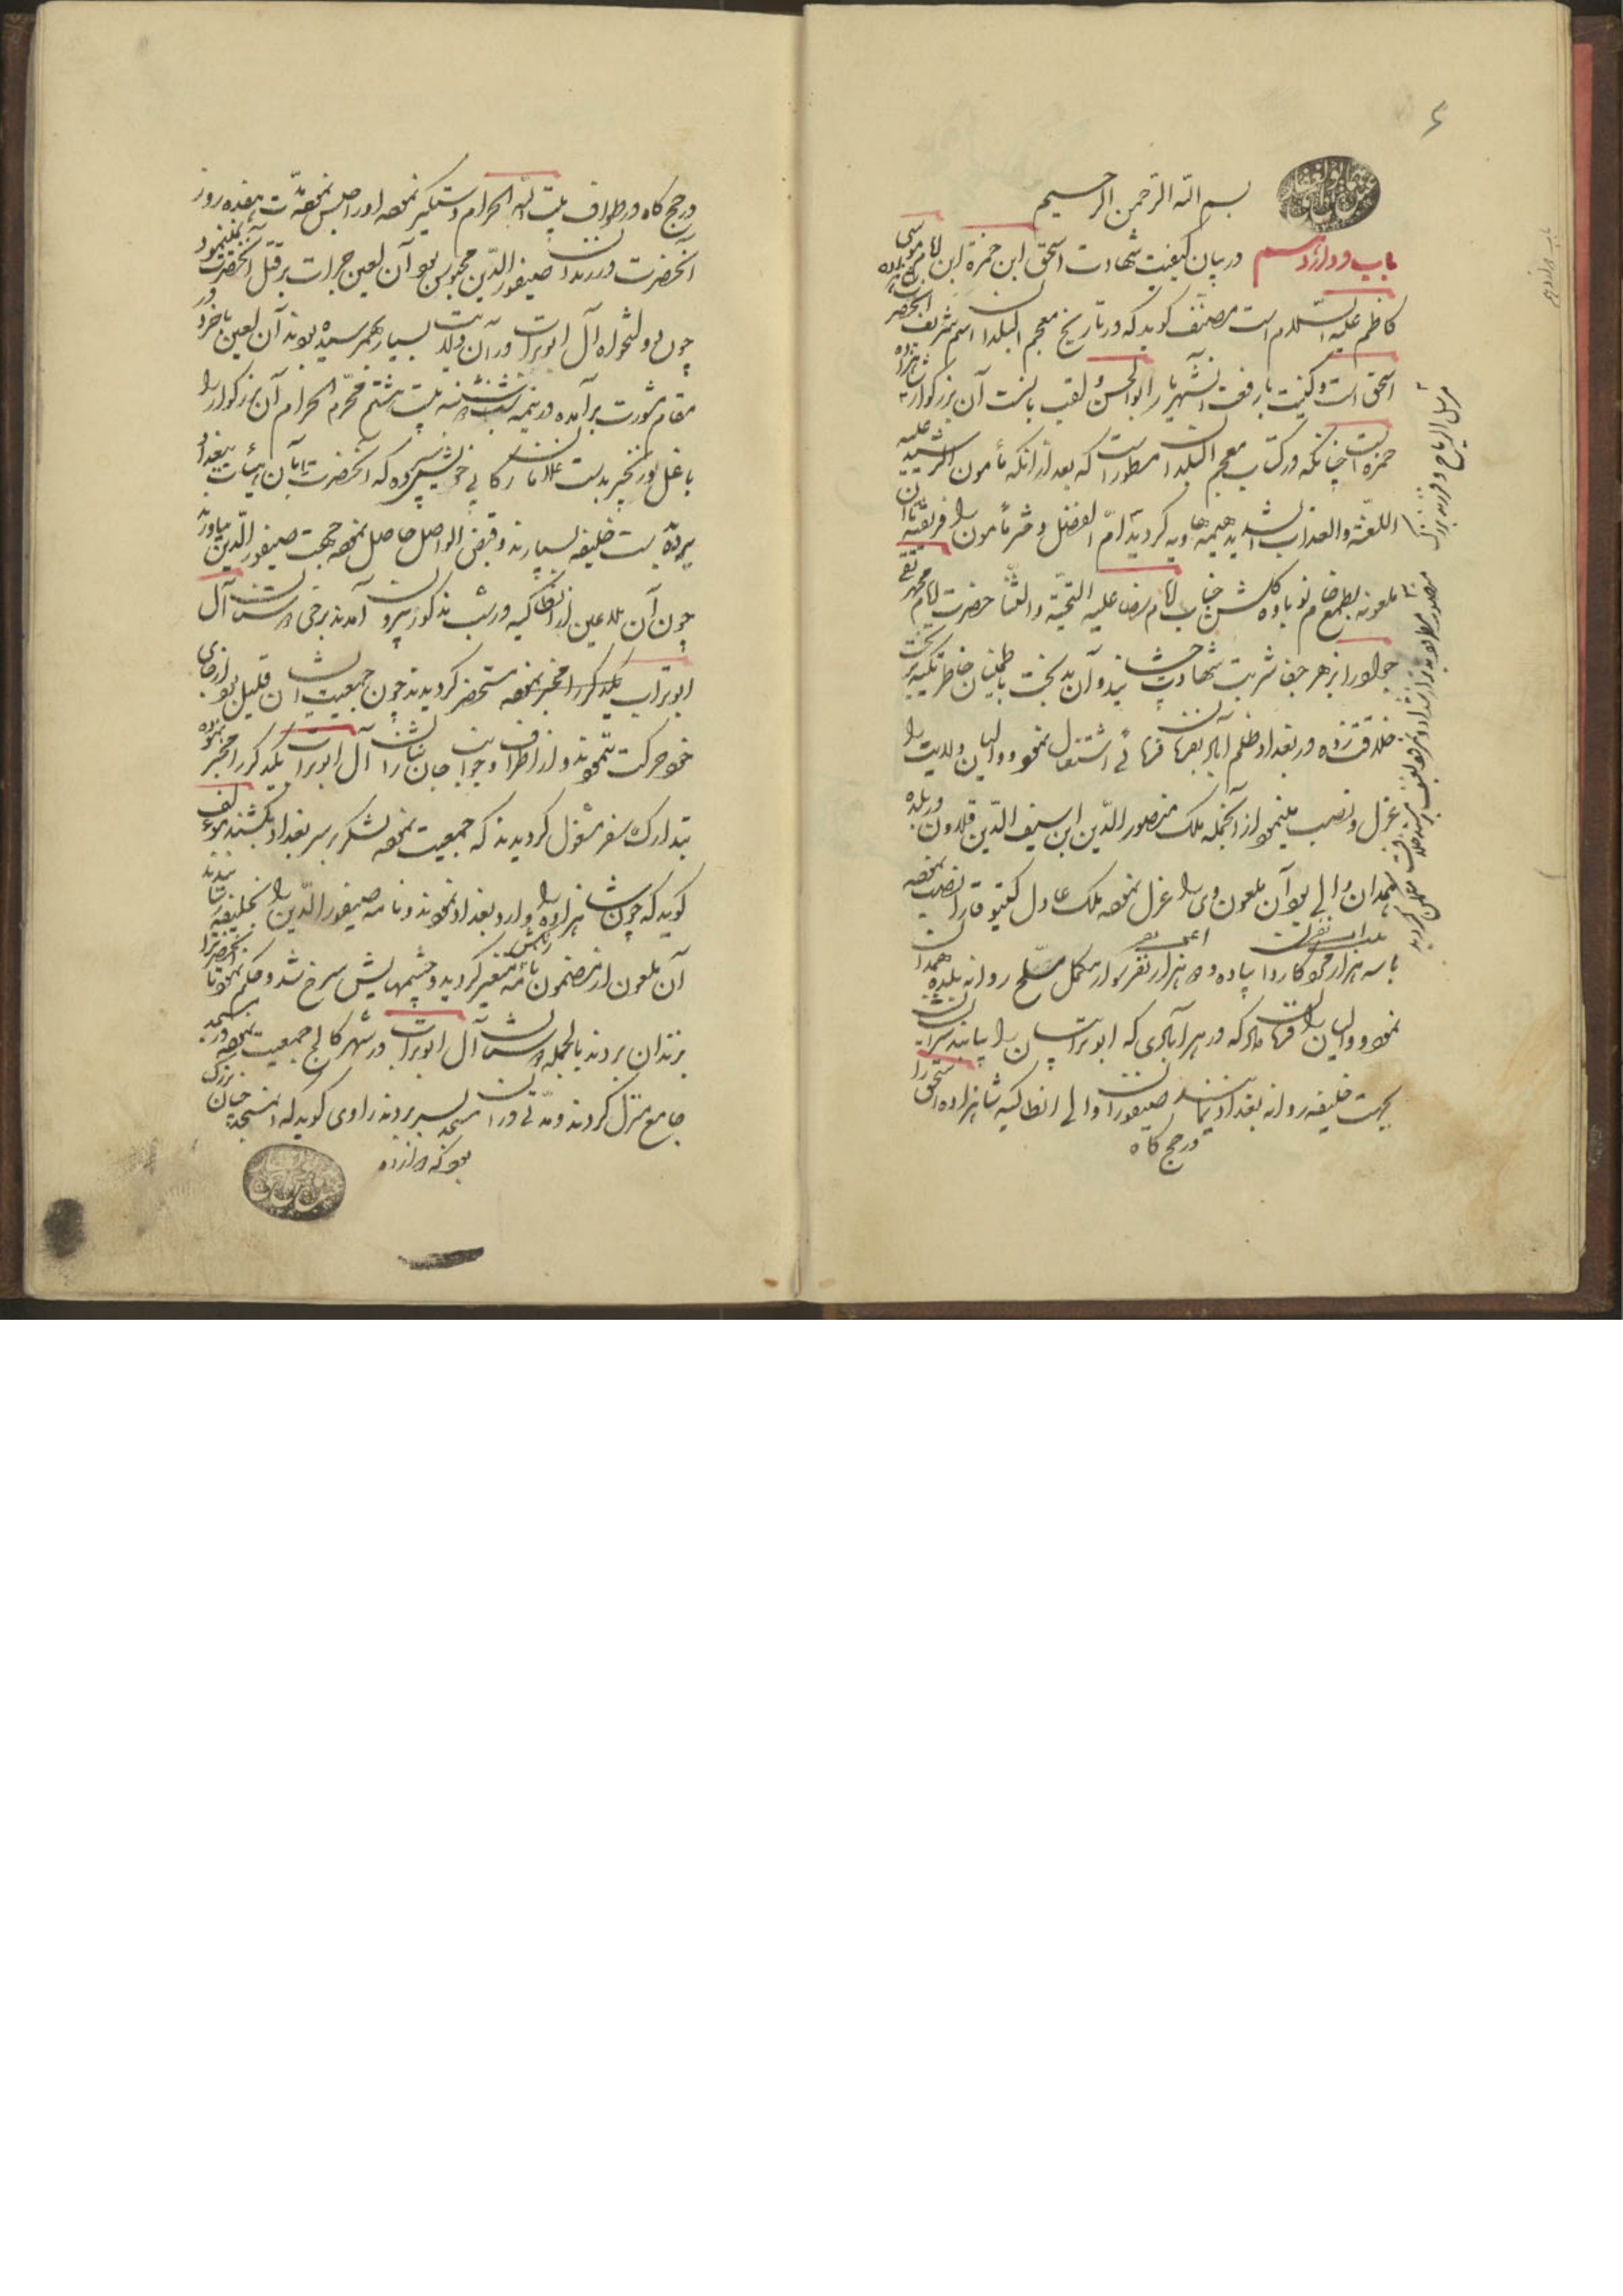 بسم الله الرحمن الرحیم
باب دوازدهم در بیان کیفیت شهادت اسحق ابن حمزة ابن امام موسی
کاظم علیه السلام است مصنف کوید که در تاریخ معجم البلدان اسم شریف آنحضرت
اسحق است و کنیت با رفعت آن شهریار ابوالحسن و لقب آن بزرکوار شاهزاده
حمزه است چنانکه در کتاب معجم البلدان مسطور است که بعد از آنکه مأمون الرشید علیه
اللعنة والعذاب الشدید هیمه هاویه کردید ام الفضل دختر مأمون را فریفته تا آن
ملعونه بطمع خام نوباوه کلشن جناب امام رضا علیه التحیة والثنا حضرت امام محمد تقی
جواد را بزهر جفا شربت شهادت چشانید و آن بدبخت باطمینان خاطر تکیه بر تخت
خلافت زده در بغداد ظلم آباد بفرمانفرمائی اشتغال نمود و والیان ولایت را
عزل و نصب مینمود از آنجمله ملک منصورالدین ابن سیف الدین قلادون در بلده
همدان والی بود آن ملعون وی را عزل نموده ملک عادل کیتوقا را نصب نموده
با سه هزار کاردار پیاده و ده هزار نفر سوار مکمل مسلح روانه بلده همدان
نمود و والیان را فرمان داد که در هر آبادی که ابوترابیان را بیابند سر ایشان
بجهت خلیفه روانه بغداد نمایند صیفور والی انطاکیه شاهزاده اسحق را
در حج کاه
در حج کاه در طواف بیت الله الحرام دستکیر نموده او را حبس نموده مدت هفده روز
آنحضرت در زندان صیفورالدین محبوس بود آن لعین جرات بر قتل آنحضرت نمینمود
چون دولتخواه آل ابوتراب در آن ولایت بسیار بهمرسیده بودند آن لعین با خود در
مقام مشورت برآمده در نیمه شب شنبه بیست هشتم محرم الحرام آن بزرکوار را
با غل و زنجیر بدست غلامان رکابی خویش سپرده که آنحضرت را بآن هیئات ببغداد
برده بدست خلیفه بسپارند و قبض الواصل حاصل نموده بجهت صیفورالدین بیاورند
چون آن ملاعین از انطاکیه در شب مذکور بیرون آمدند برخی دوستان آل
ابوتراب یکدیکر را مخبر نموده مستحضر کردیدند چون جمعیت ایشان قلیل بود از جای
خود حرکت ننمودند و از اطراف و جوانب جان نثاران آل ابوتراب یکدیکر را مخبر نموده
بتدارک سفر مشغول کردیدند که جمعیت نموده لشکر بر سر بغداد بکشند مؤلف
کوید که چون شاهزاده را وارد بغداد نمودند و نامه صیفورالدین را بخلیفه رسانیدند
آن ملعون از مضمون نامه متغیر کردید و چشمهایش سرخ شد و حکم نمود تا آنحضرت را
بزندان بردند بالجمله دوستان آل ابوتراب در شهر کالج جمعیت نموده در مسجد
جامع منزل کردند و مدتی در آن مسجد بسر بردند راوی کوید که آن مسجد چنان بزرک
بود که دوازده